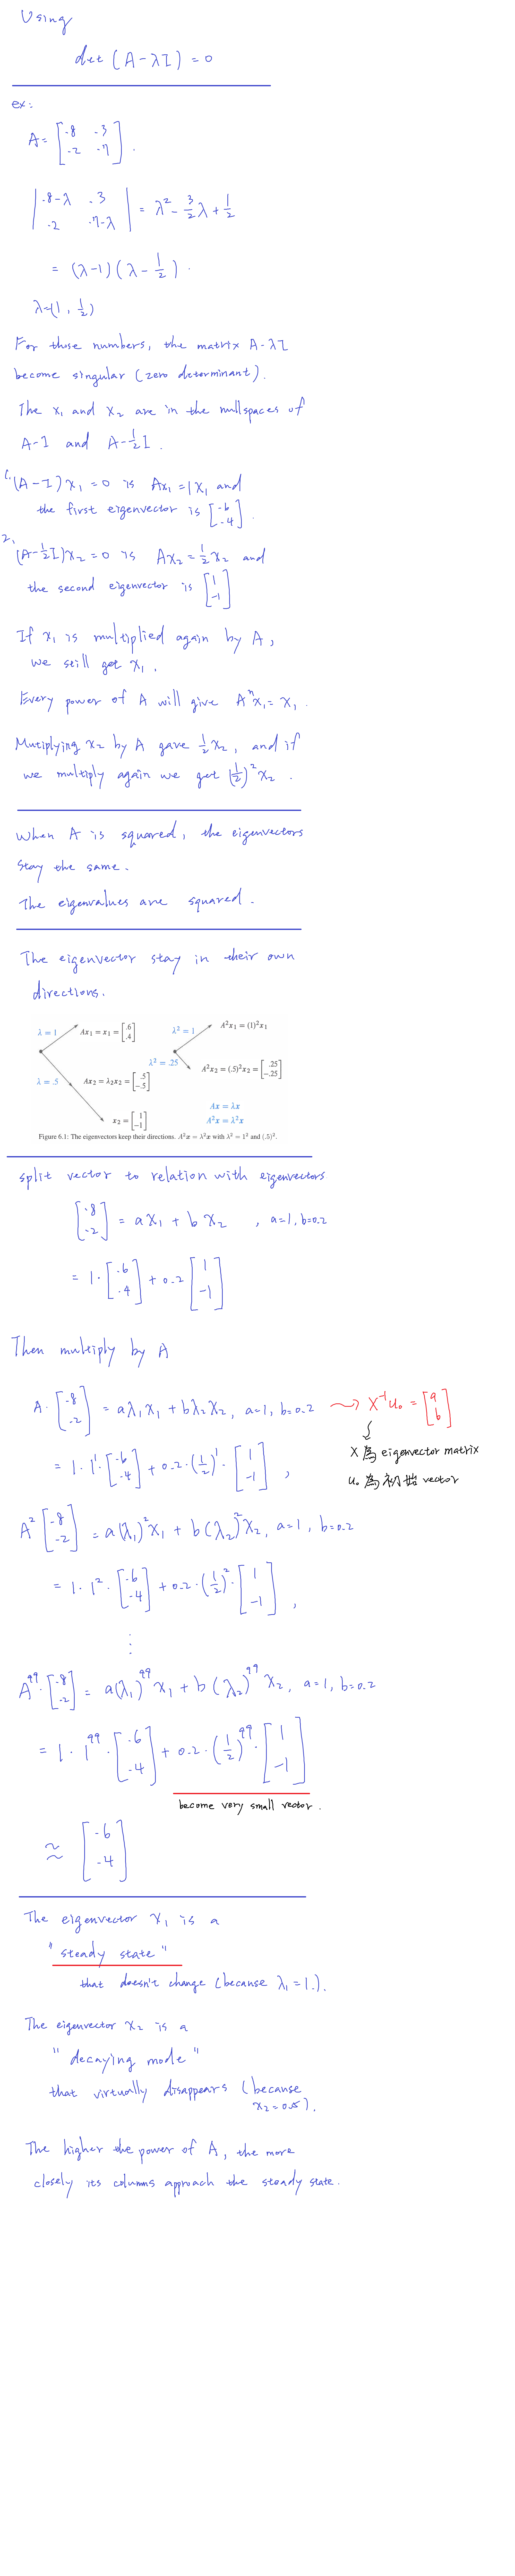 Using
det (A - λI) = 0
ex:
A = [.8 .3
.2 .7] .
|.8-λ .3
.2 .7-λ| = λ² - 3/2 λ + 1/2
= (λ-1)(λ - 1/2) .
λ=(1, 1/2)
For those numbers, the matrix A-λI
become singular (zero determinant).
The x₁ and x₂ are in the nullspaces of
A-I and A-½I .
1. (A-I)x₁ = 0 is Ax₁ = 1x₁ and
the first eigenvector is [.6
.4] .
2. (A-½I)x₂=0 is Ax₂=½x₂ and
the second eigenvector is [1
-1]
If x₁ is multiplied again by A,
we still get x₁ .
Every power of A will give Aⁿx₁= x₁ .
Mutiplying x₂ by A gave ½x₂, and if
we multiply again we get (½)²x₂ .
When A is squared, the eigenvectors
stay the same.
The eigenvalues are squared .
The eigenvector stay in their own
directions.
λ = 1 Ax₁ = x₁ = [.6
.4] λ² = 1 A²x₁ = (1)²x₁
λ = .5 Ax₂ = λ₂x₂ = [.5
-.5] λ² = .25 A²x₂ = (.5)²x₂ = [.25
-.25]
x₂ = [1
-1] Ax = λx
A²x = λ²x
Figure 6.1: The eigenvectors keep their directions. A²x = λ²x with λ² = 1² and (.5)².
split vector to relation with eigenvectors
[.8
.2] = a x₁ + b x₂ , a=1, b=0.2
= 1·[.6
.4] + 0.2[1
-1]
Then multiply by A
A·[.8
.2] = aλ₁x₁ + bλ₂x₂, a=1, b=0.2 → X⁻¹u₀ = [a
b]
X 為 eigenvector matrix
u₀ 為初始 vector
= 1·1¹·[.6
.4] + 0.2·(½)¹·[1
-1] ,
A²[.8
.2] = a(λ₁)²x₁ + b(λ₂)²x₂, a=1, b=0.2
= 1·1²·[.6
.4] + 0.2·(½)²·[1
-1] ,
⋮
A⁹⁹·[.8
.2] = a(λ₁)⁹⁹x₁ + b(λ₂)⁹⁹x₂, a=1, b=0.2
= 1·1⁹⁹·[.6
.4] + 0.2·(½)⁹⁹·[1
-1]
become very small vector .
≈ [.6
.4]
The eigenvector x₁ is a
"steady state"
that doesn't change (because λ₁=1.).
The eigenvector x₂ is a
"decaying mode"
that virtually disappears (because
x₂=0.5).
The higher the power of A, the more
closely its columns approach the steady state.